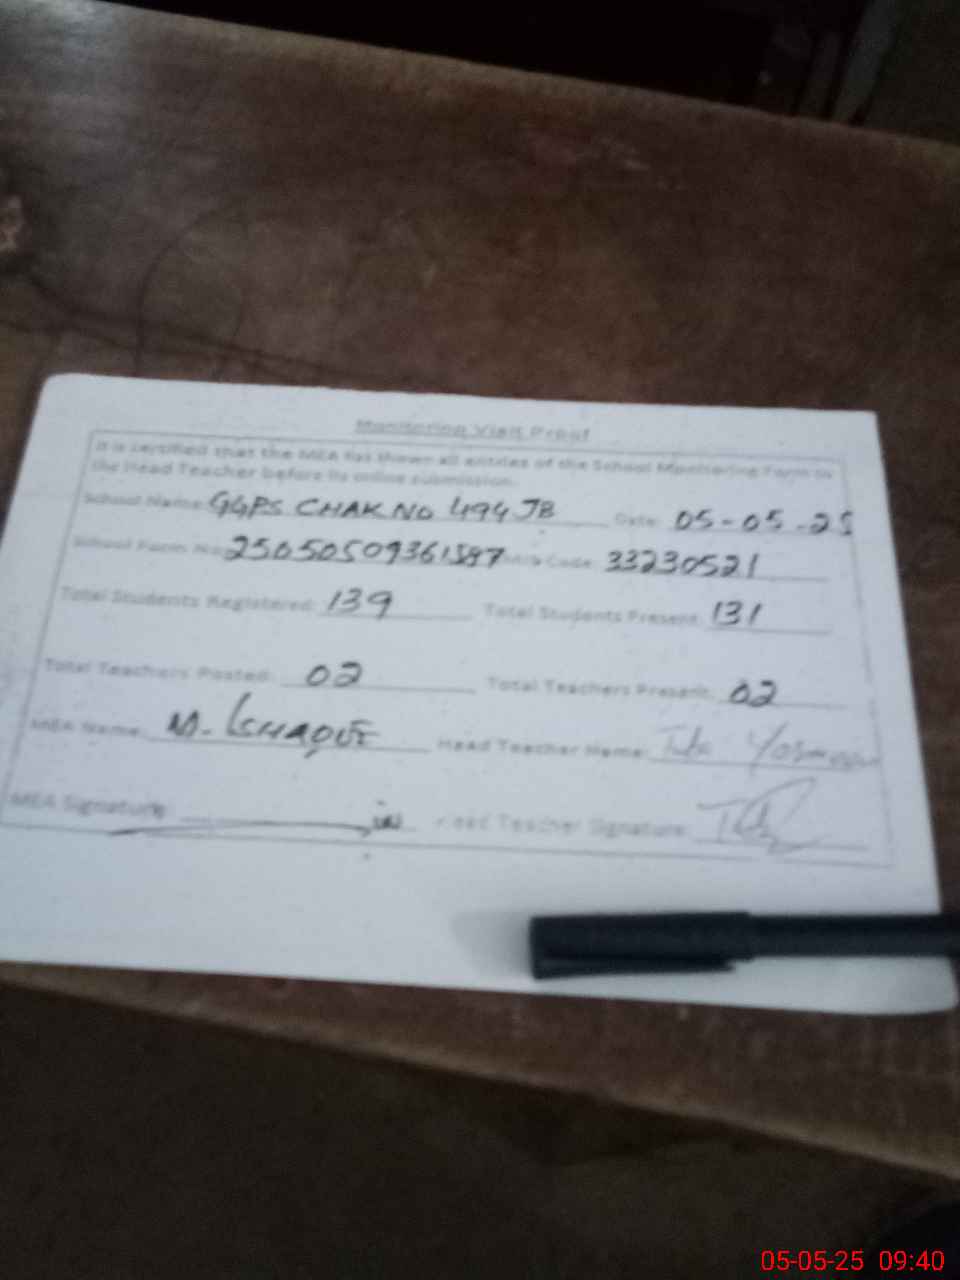 Monitoring Visit Proof
It is certified that the MEA has shown all entries of the School Monitoring Form to
the Head Teacher before its online submission.
School Name: GGPS CHAK NO 494 JB Date: 05-05-25
School Form No: 25050509361597 Code: 33230521
Total Students Registered: 139 Total Students Present: 131
Total Teachers Posted: 02 Total Teachers Present: 02
MEA Name: M. ISHAQUE Head Teacher Name:
MEA Signature: Head Teacher Signature:
05-05-25 09:40